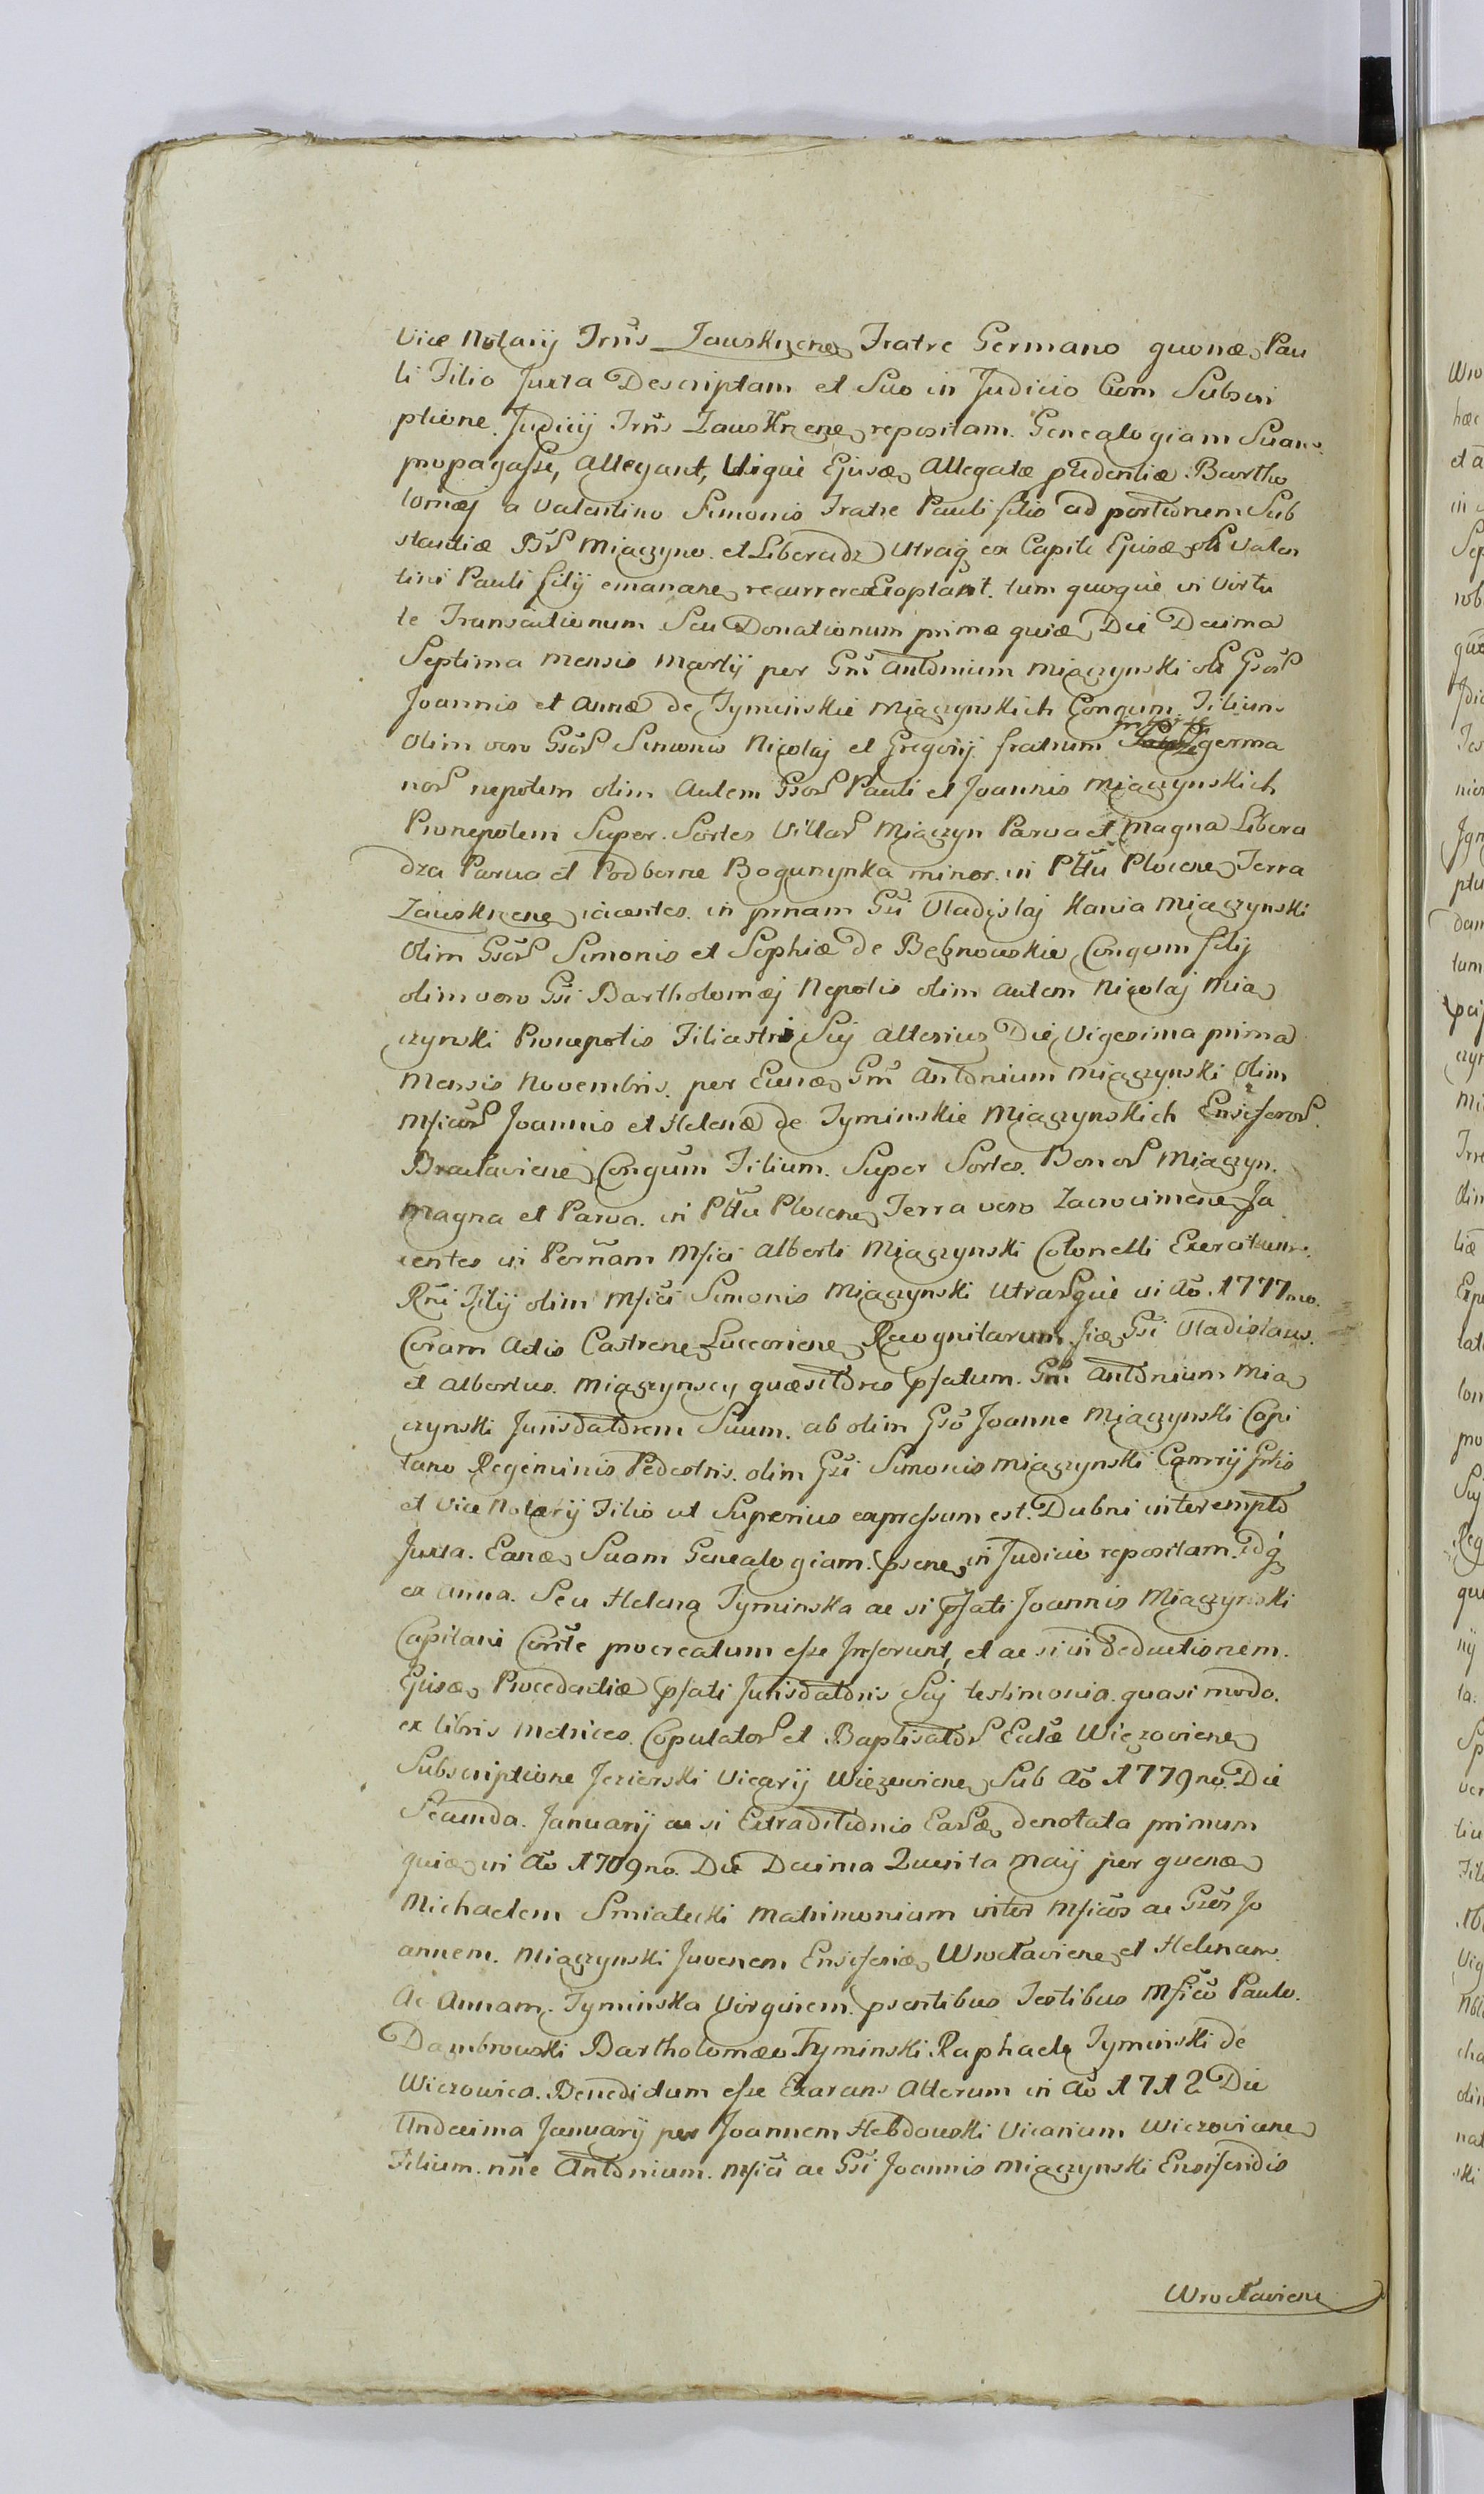 Vice Notarij Trris Zauskrzenen Fratre Germano quondæ Pau
li Filio Juxta Descriptam et Suo in Judicio Cum Subscri
ptione Judicij Trris Zauskrzenen repositam Genealogiam Suam
propagasse, Allegant, Utique Ejusdæ Allegatæ pcedentiæ Bartho
lomæj a Valentino Simonis Fratre Pauli filio ad portionem Sub
stantiæ Bor Miączyno et Liberadz Utraq ex Capite Ejusdæ olī Valen
tini Pauli filij emanare recurrere Exoptant tum quoque vi Virtu
te Transactionum Seu Donationum primæ quidæ Die Decima
Septima Mensis Martij per Gm Antonium Miączynski olī Gsor
Joannis et Annæ de Tyminskie Miączynskich Congum Filium
Olim vero Gsor Simonis Nicolaj et Gregorij fratrum germa
nor nepotem olim Autem Gsor Pauli et Joannis Miączynskich
Pronepotem Super Sortes Villar Miączyn Parva et Magna Libera
dza Parva et Podborne Bogunynka minor in Pttu Plocene Terra
Zauskrzene iacentes in prnam Gsi Vladislaj Kania Miączynski
Olim Gsor Simonis et Sophiæ de Bębnowskie Congum filij
olim vero Gsi Bartholomæj Nepotis olim Autem Nicolaj Mią
czynski Pronepotis Filiastri Suj Alterius Die Vigesima prima
Mensis Novembris per Eundæ Gm Antonium Miączynski Olim
Mficor Joannis et Helenæ de Tyminskie Miączynskich Ensiferor
Braclaviene Congum Filium Super Sortes Bonor Miączyn
Magna et Parva in Pttu Plocene Terra vero Zacrocimene Ja
centes in Pernam Mfici Alberti Miączynski Colonelli Exercituum
Rni Filij olim Mfici Simonis Miączynski Utrarque vi Ao 1777mo
Coram Actis Castrene Luccoriene Recognitarum fiæ Gsi Vladislaus
et Albertus Miączynscy quæsitores pfatum Gm Antonium Mią
czynski Jurisdatorem Suum ab olim Gso Joanne Miączynski Capi
tano Regiminis Pedestris olim Gsi Simonis Miączynski Camrij
et Vice Notarij Filio ut Superius expressum est Dubni interempto
Juxta Eandæ Suam Genealogiam psene in Judicio repositam Idq
ex Anna Seu Helena Tyminska ac si pfati Joannis Miączynski
Capitani Conte procreatum esse Inferunt, et ac si in deductionem
Ejusdæ Procedentiæ pfati Jurisdatoris Suj testimonia quasi modo
ex libris Metrices Copulator et Baptisator Eclæ Wiązoviene
Subscriptione Jezierski Vicarij Wiezoviene Sub Ao 1779no Die
Secunda Januarij ac si Extraditionis Earæ denotata primum
quidæ in Ao 1709no Die Decima Quinta Maij per quendæ
Michaelem Smiatecki Matrimonium inter Mficos ac Gsos Jo
annem Miączynski Juvenem Ensiferidæ Wroclaviene et Helenam
Ac Annam Tyminska Virginem psentibus Testibus Mfico Paulo
Dąmbrowski Bartholomæo Tyminski Raphaele Tyminski de
Wiezowiea Benedictum esse Exarans Alterum in Ao 1712 Die
Undecima Januarij per Joannem Hebdowski Vicarium Wiezoviene
Filium nne Antonium Mfici ac Gsi Joannis Miączynski Ensiferidis
Wroclaviene